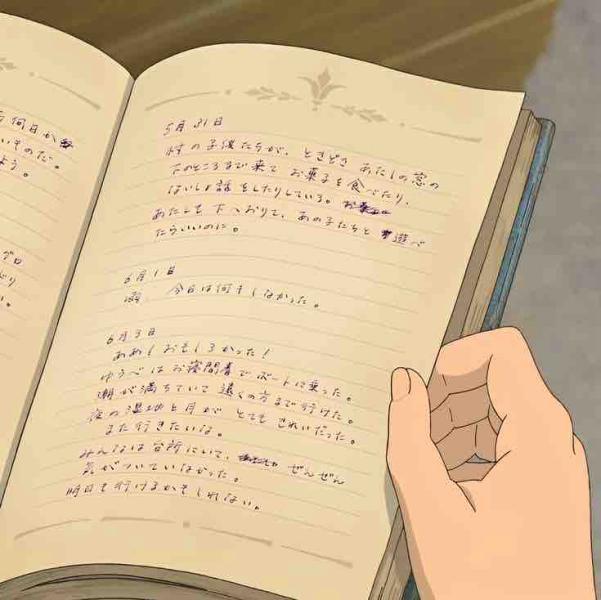 何日か
いものだ。
よう。
グロ
どり
い。
5月31日
村の子供たちが、ときどき あたしの窓の
下のところまで来て お菓子を食べたり、
ないしょ話 をしたりしている。
あたしも 下へおりて、あの子たちと 遊べ
たらいいのに。
6月1日
雨 今日は何もしなかった。
6月3日
ああ！おもしろかった！
ゆうべは お寝間着で ボートに乗った。
潮が満ちていて 遠くの方まで行けた。
夜の湿地と月が とても きれいだった。
また行きたいな。
みんなは 台所にいて、 ぜんぜん
気がついていなかった。
明日も行けるかもしれない。